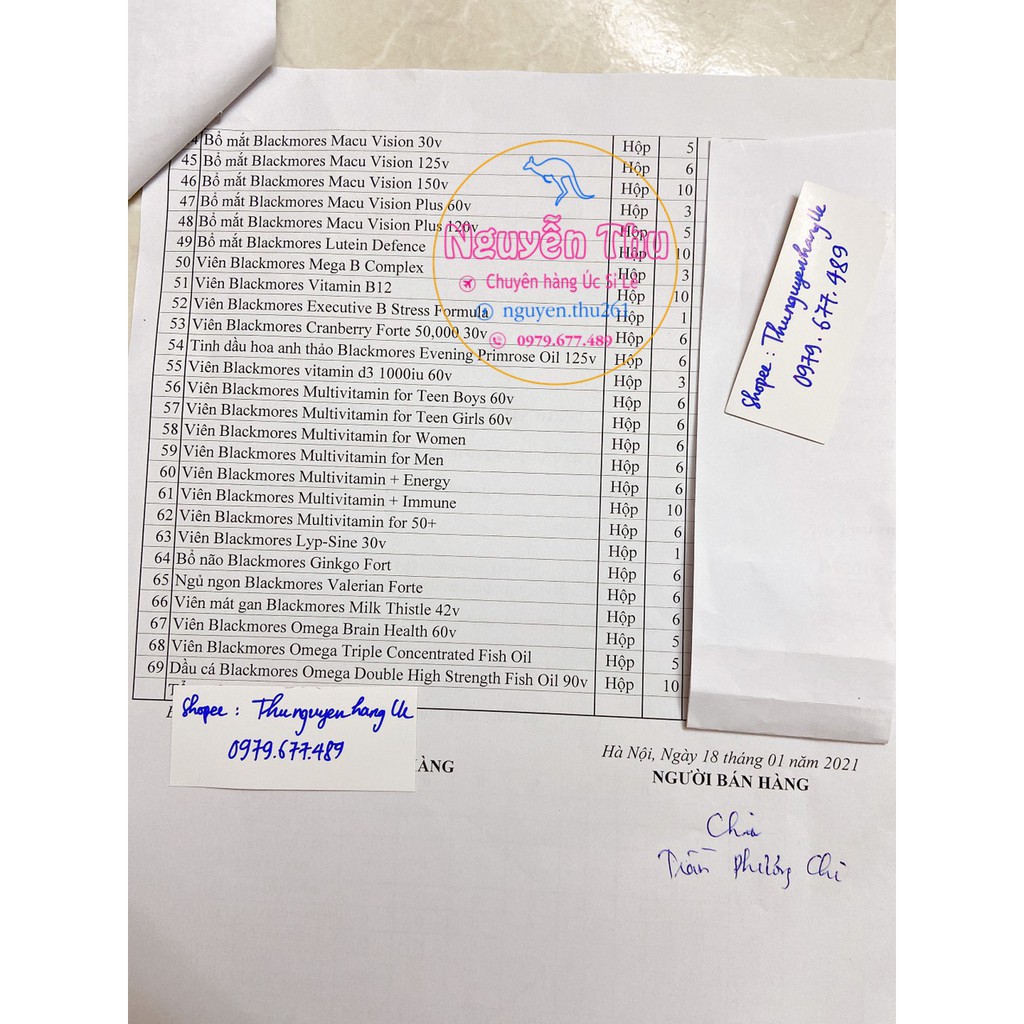 Bổ mắt Blackmores Macu Vision 30v Hộp 5
45 Bổ mắt Blackmores Macu Vision 125v Hộp 6
46 Bổ mắt Blackmores Macu Vision 150v Hộp 10
47 Bổ mắt Blackmores Macu Vision Plus 60v Hộp 3
48 Bổ mắt Blackmores Macu Vision Plus 120v Hộp 5
49 Bổ mắt Blackmores Lutein Defence Hộp 10
50 Viên Blackmores Mega B Complex Hộp 3
51 Viên Blackmores Vitamin B12 Hộp 10
52 Viên Blackmores Executive B Stress Formula Hộp 1
53 Viên Blackmores Cranberry Forte 50,000 30v Hộp 6
54 Tinh dầu hoa anh thảo Blackmores Evening Primrose Oil 125v Hộp 6
55 Viên Blackmores vitamin d3 1000iu 60v Hộp 3
56 Viên Blackmores Multivitamin for Teen Boys 60v Hộp 6
57 Viên Blackmores Multivitamin for Teen Girls 60v Hộp 6
58 Viên Blackmores Multivitamin for Women Hộp 6
59 Viên Blackmores Multivitamin for Men Hộp 6
60 Viên Blackmores Multivitamin + Energy Hộp 6
61 Viên Blackmores Multivitamin + Immune Hộp 10
62 Viên Blackmores Multivitamin for 50+ Hộp 6
63 Viên Blackmores Lyp-Sine 30v Hộp 1
64 Bổ não Blackmores Ginkgo Fort Hộp 6
65 Ngủ ngon Blackmores Valerian Forte Hộp 6
66 Viên mát gan Blackmores Milk Thistle 42v Hộp 6
67 Viên Blackmores Omega Brain Health 60v Hộp 5
68 Viên Blackmores Omega Triple Concentrated Fish Oil Hộp 5
69 Dầu cá Blackmores Omega Double High Strength Fish Oil 90v Hộp 10
Nguyễn Thu
Chuyên hàng Úc Sỉ Lẻ
nguyen.thu261
0979.677.489
Shopee : ThunguyenhangUc
0979.677.489
Shopee : Thunguyenhang Uc
0979.677.489
HÀNG
Hà Nội, Ngày 18 tháng 01 năm 2021
NGƯỜI BÁN HÀNG
Chi
Trần Phương Chi